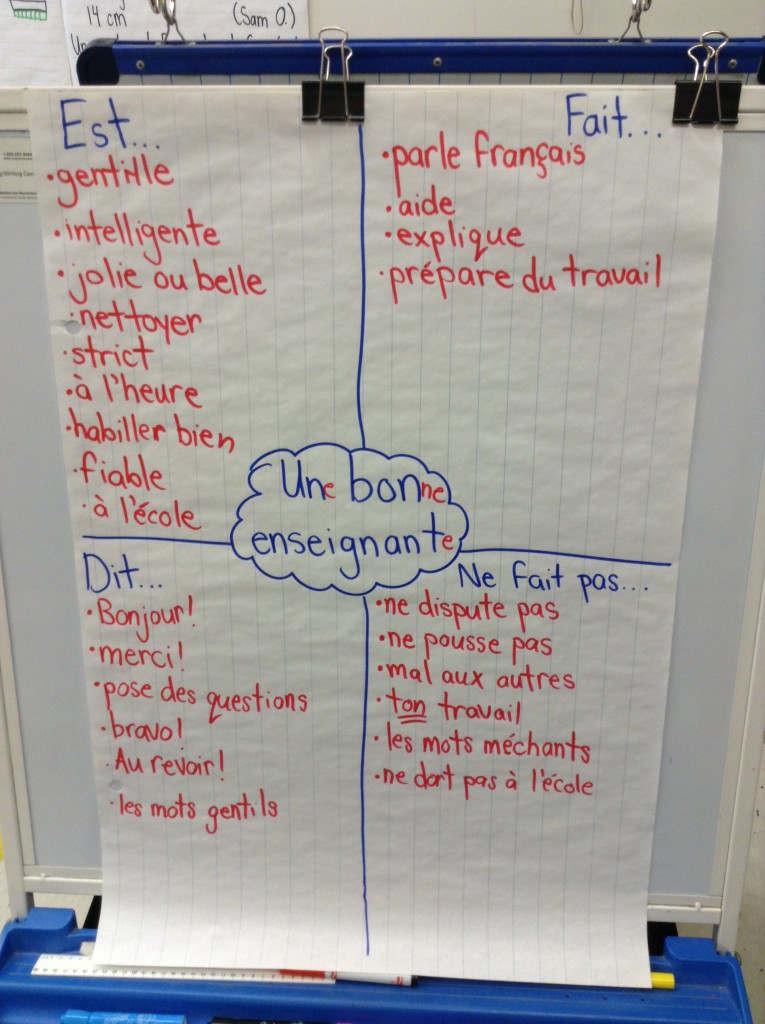 14 cm (Sam O.)
Est...
•gentille
•intelligente
•jolie ou belle
•nettoyer
•strict
•à l'heure
•habiller bien
•fiable
•à l'école
Fait...
•parle français
•aide
•explique
•prépare du travail
Une bonne
enseignante
Dit...
•Bonjour!
•merci!
•pose des questions
•bravo!
•Au revoir!
•les mots gentils
Ne fait pas...
•ne dispute pas
•ne pousse pas
•mal aux autres
•ton travail
•les mots méchants
•ne dort pas à l'école